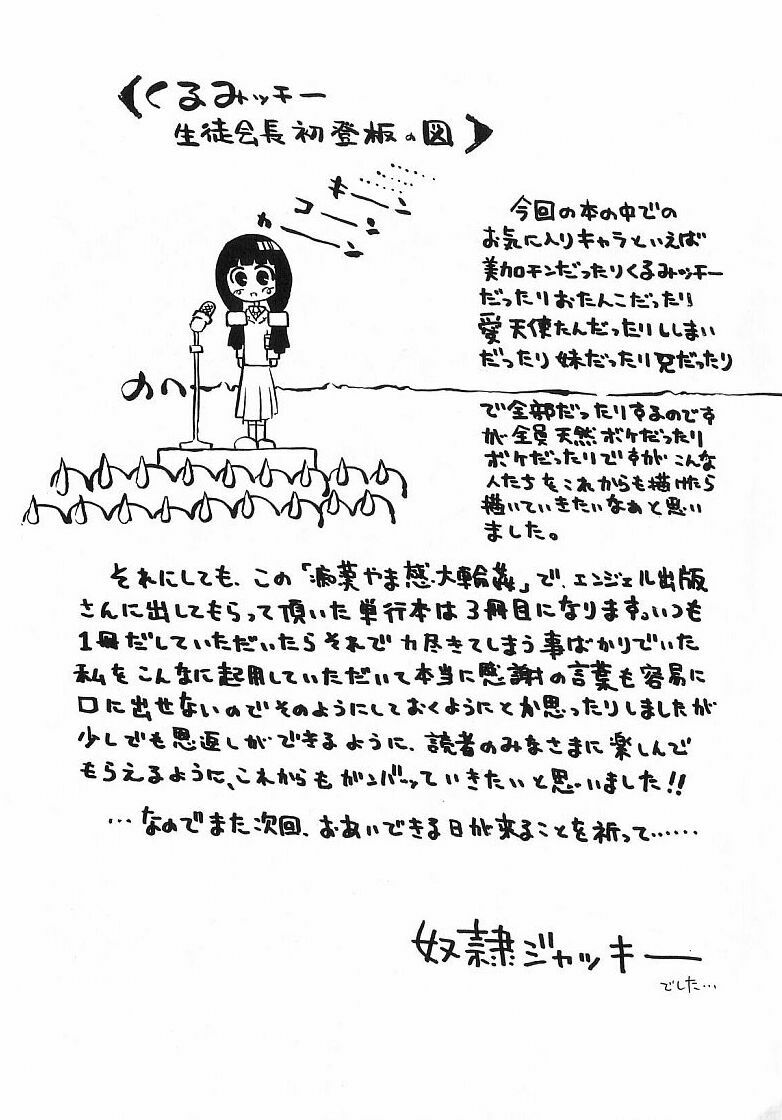 くるみッチー
生徒会長初登板の図
キーン
コーン
カーン
今回の本の中での
お気に入りキャラといえば
美加チンだったりくるみッチー
だったりおたんこだったり
愛天使たんだったりししまい
だったり妹だったり兄だったり
で全部だったりするのです
が全員天然ボケだったり
ボケだったりですがこんな
人たちをこれからも描けたら
描いていきたいなぁと思い
ました。
それにしても、この「病葉やま感・大輪姦」で、エンジェル出版
さんに出してもらって頂いた単行本は3冊目になります。いつも
1冊だしていただいたらそれで力尽きてしまう事ばかりでいた
私をこんなに起用していただいて本当に感謝の言葉も容易に
口に出せないのでそのようにしておくようにとか思ったりしましたが
少しでも恩返しができるように、読者のみなさまに楽しんで
もらえるように、これからもガンバッていきたいと思いました!!
…なのでまた次回、おあいできる日が来ることを祈って……
奴隷ジャッキー
でした…